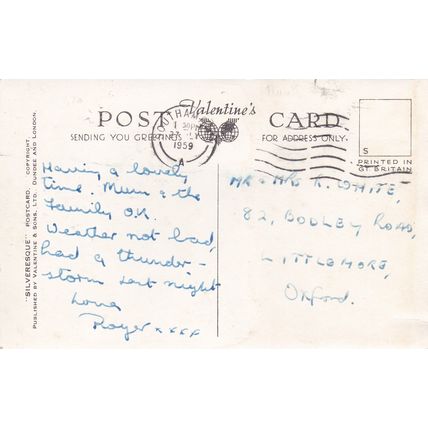 POST Valentine's CARD
SENDING YOU GREETINGS
FOR ADDRESS ONLY
1959
A
S
PRINTED IN
GT BRITAIN
"SILVERESQUE" POSTCARD. COPYRIGHT
PUBLISHED BY VALENTINE & SONS, LTD. DUNDEE AND LONDON.
Having a lovely
time. Mum & the
family O.K.
Weather not bad,
had a thunder-
storm last night
Love
Roger xxxx
MR & MRS R. WHITE,
82, BODLEY ROAD,
LITTLEMORE,
Oxford.